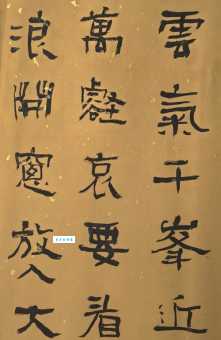 雲氣千峯近
萬壑哀要看
浪開窗放入大